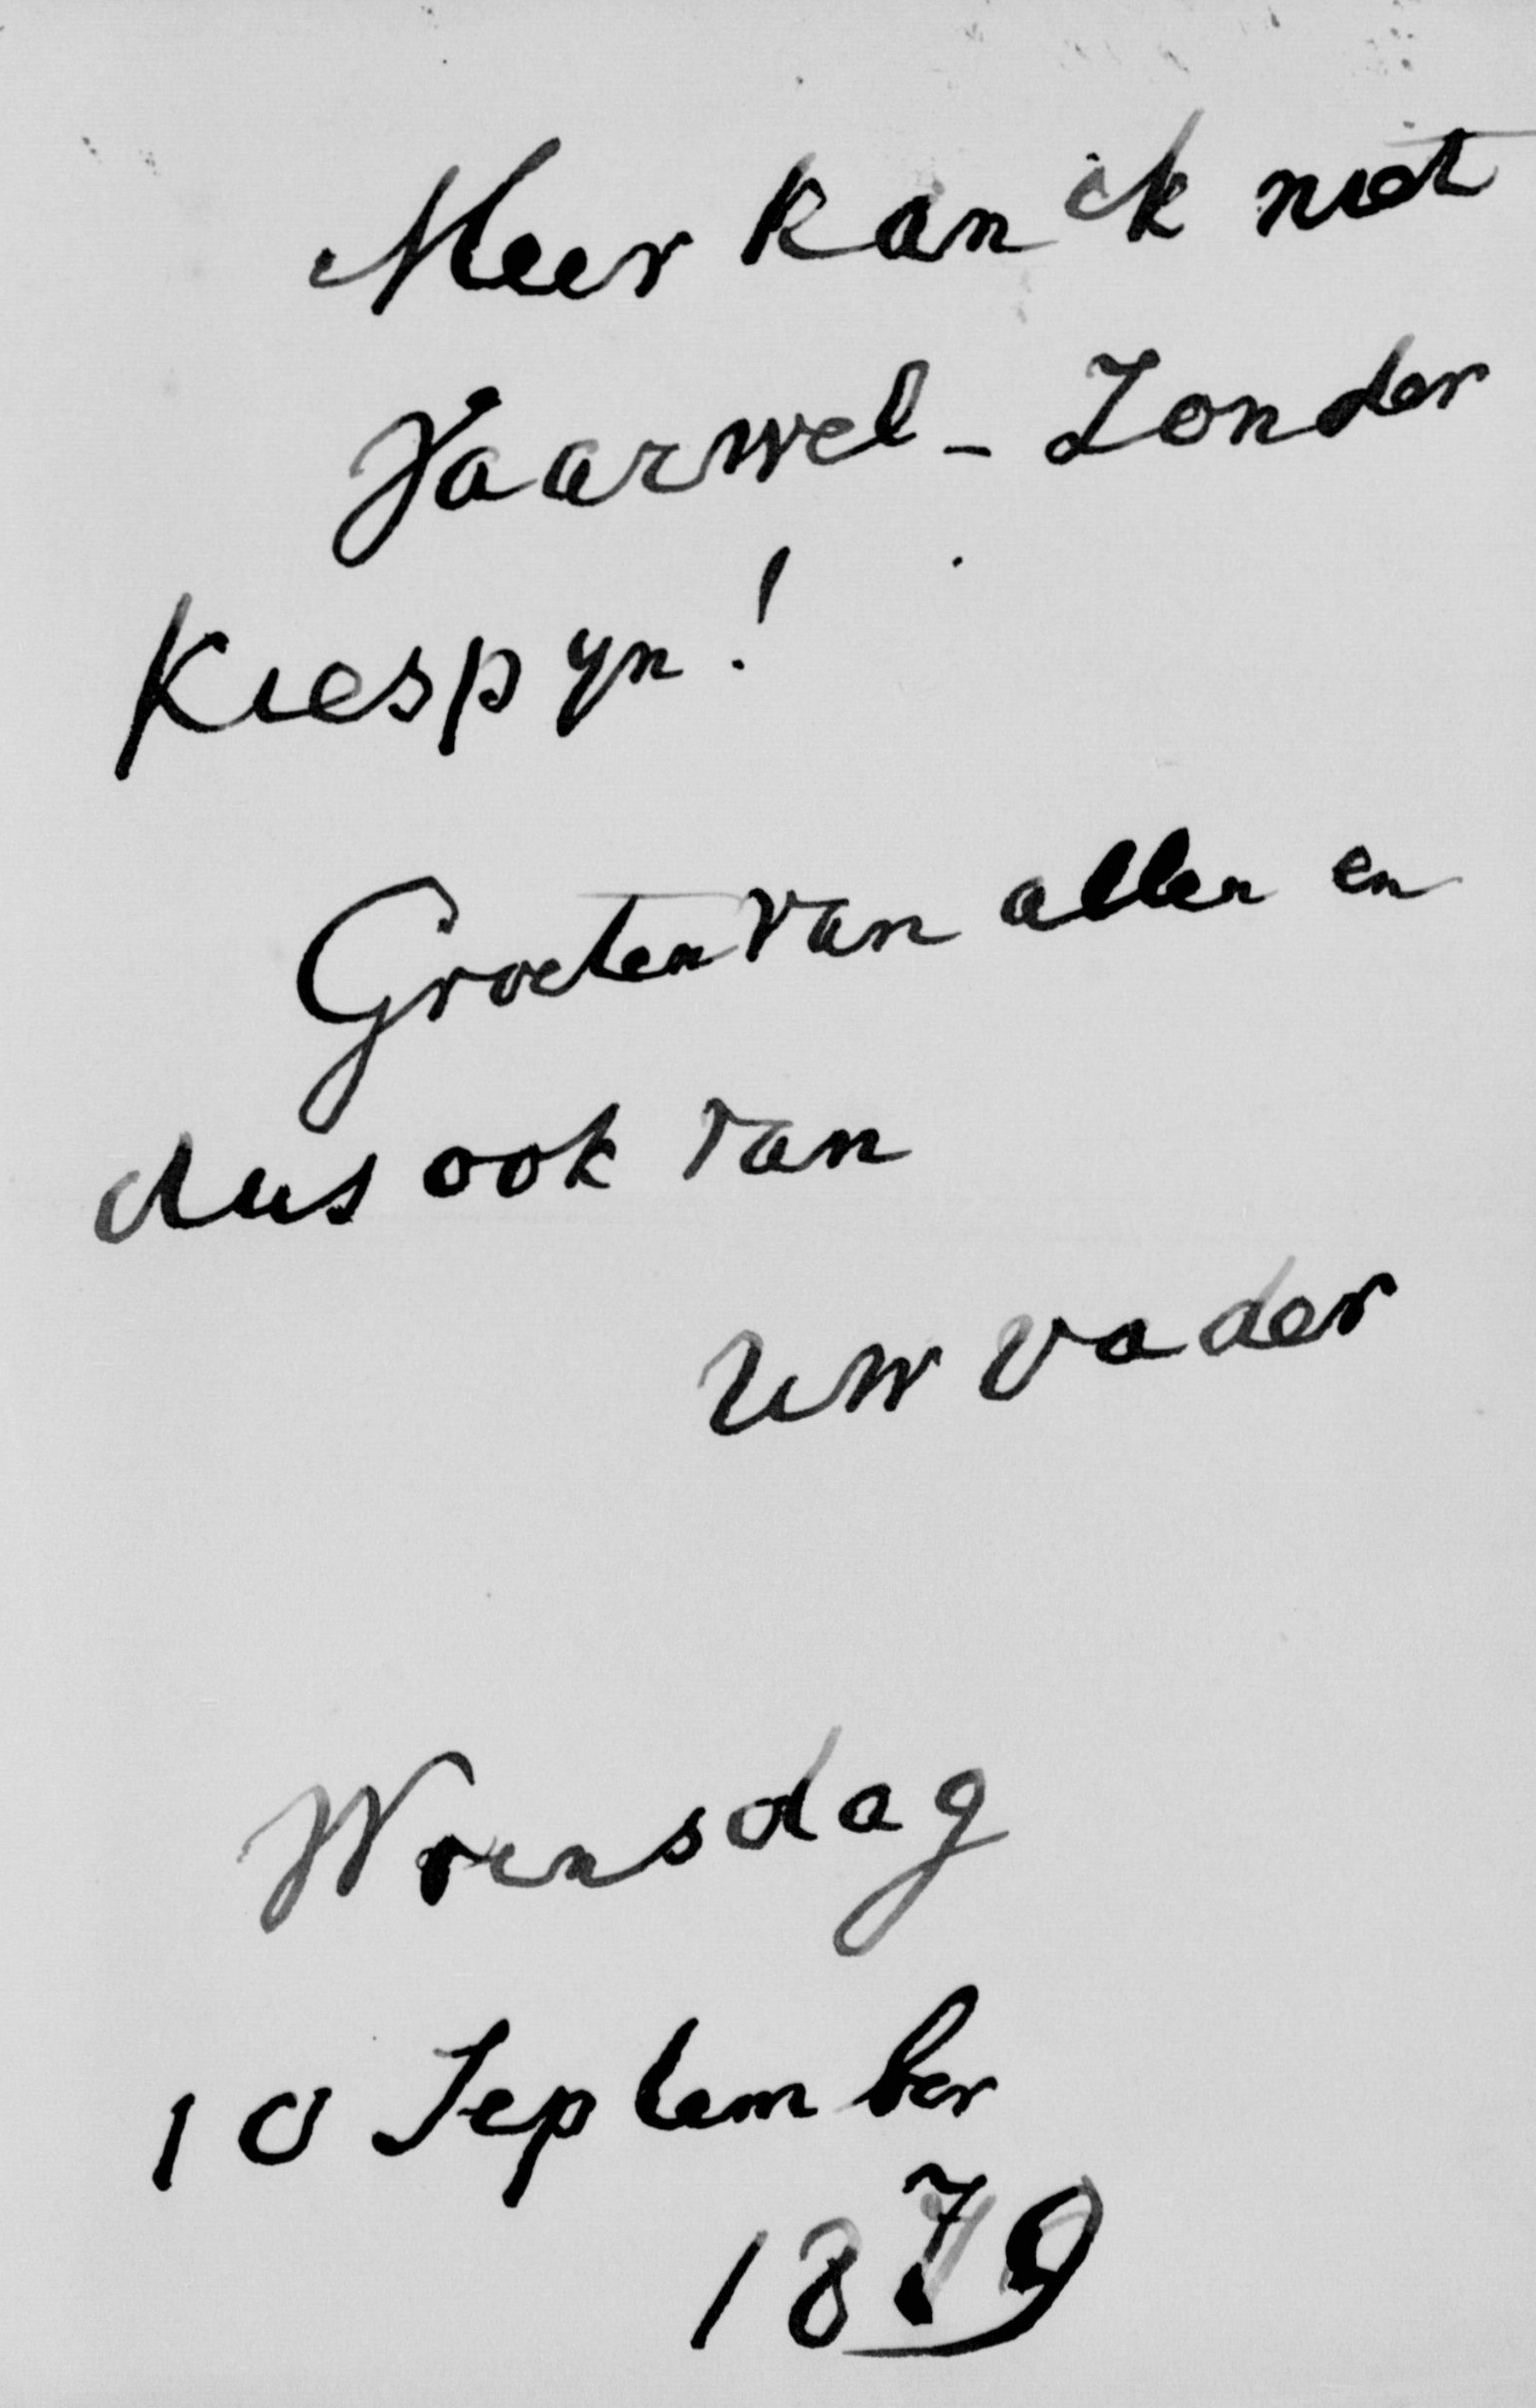 Meer kan ik niet
Vaarwel - Zonder
Kiespyn!
Groeten van allen en
dus ook van
Uw vader
Woensdag
10 September
1879